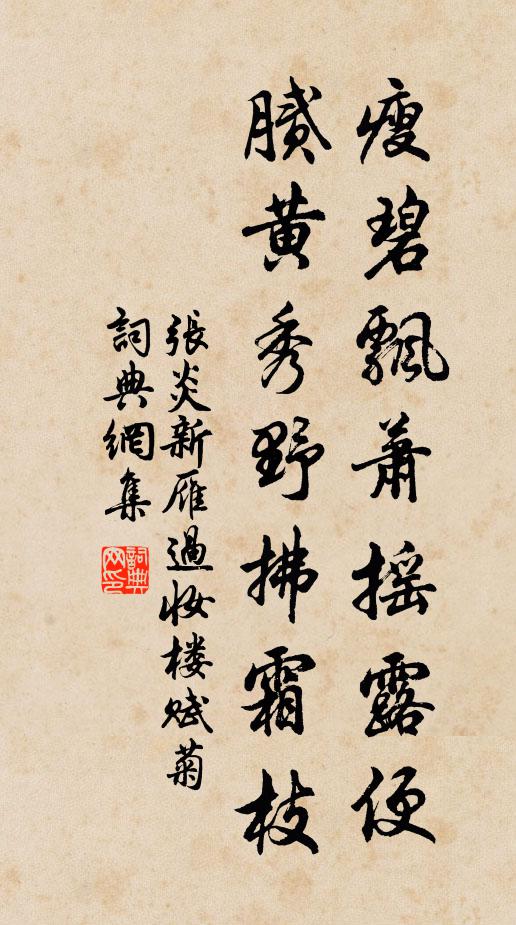 瘦碧飄蕭搖露便
膩黄秀野拂霜枝
張炎新雁過妝樓賦菊
詞典網集
詞典網印